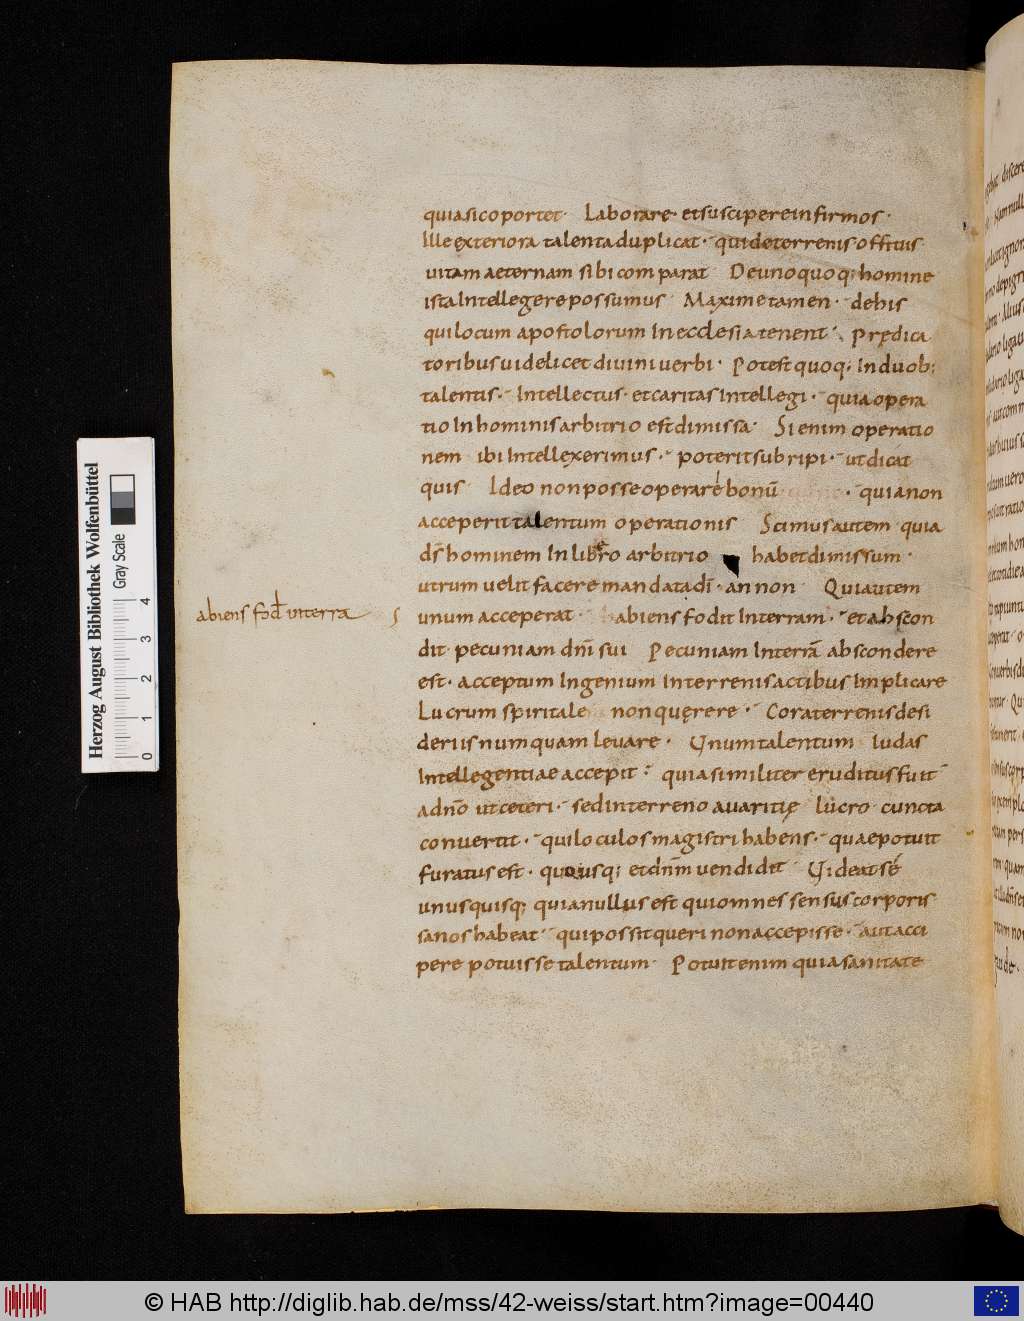 quia sic oportet · Laborare · et suscipere infirmos ·
Ille exteriora talenta duplicat · qui de terrenis offitiis
uitam aeternam sibi comparat Deunoquoq; homine
ista Intellegere possumus Maxime tamen · de his
qui locum apostolorum In ecclesia tenent · Prędica
toribus uidelicet diuini uerbi · Potest quoq; In duob;
talentis · Intellectus · et caritas Intellegi · quia opera
tio In hominis arbitrio est dimissa · Si enim operatio
nem ibi Intellexerimus · poterit subripi · ut dicat
quis Ideo non posse operare bonū · quia non
acceperit talentum operationis Scimus autem quia
ds̄ hominem In libero arbitrio habet dimissum ·
utrum uelit facere mandata dī · an non Qui autem
abiens fod̄ in terrā
unum acceperat · abiens fodit In terram · et abscon
dit pecuniam dn̄i sui Pecuniam In terrā abscondere
est · acceptum Ingenium In terrenis actibus Implicare
Lucrum spiritale non quęrere · Cor a terrenis desi
deriis numquam leuare · Unum talentum Iudas
Intellegentiae accepit · quia similiter eruditus fuit
a dn̄o ut ceteri · sed in terreno auaritię lucro cuncta
conuertit · qui loculos magistri habens · quae potuit
furatus est · quousq; et dn̄m uendidit Uideat se
unusquisq; quia nullus est qui omnes sensus corporis
sanos habeat · qui possit queri non accepisse · aut acci
pere potuisse talentum · Potuit enim quia sanitate
Herzog August Bibliothek Wolfenbüttel
Gray Scale
0 1 2 3 4
© HAB http://diglib.hab.de/mss/42-weiss/start.htm?image=00440